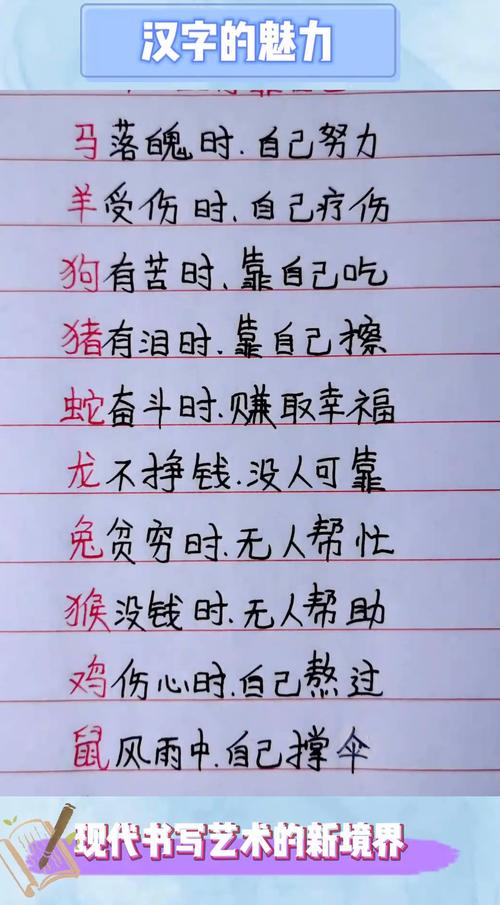 汉字的魅力
马落魄时.自己努力
羊受伤时.自己疗伤
狗有苦时.靠自己吃
猪有泪时.靠自己擦
蛇奋斗时.赚取幸福
龙不挣钱.没人可靠
兔贫穷时.无人帮忙
猴没钱时.无人帮助
鸡伤心时.自己熬过
鼠风雨中.自己撑伞
现代书写艺术的新境界